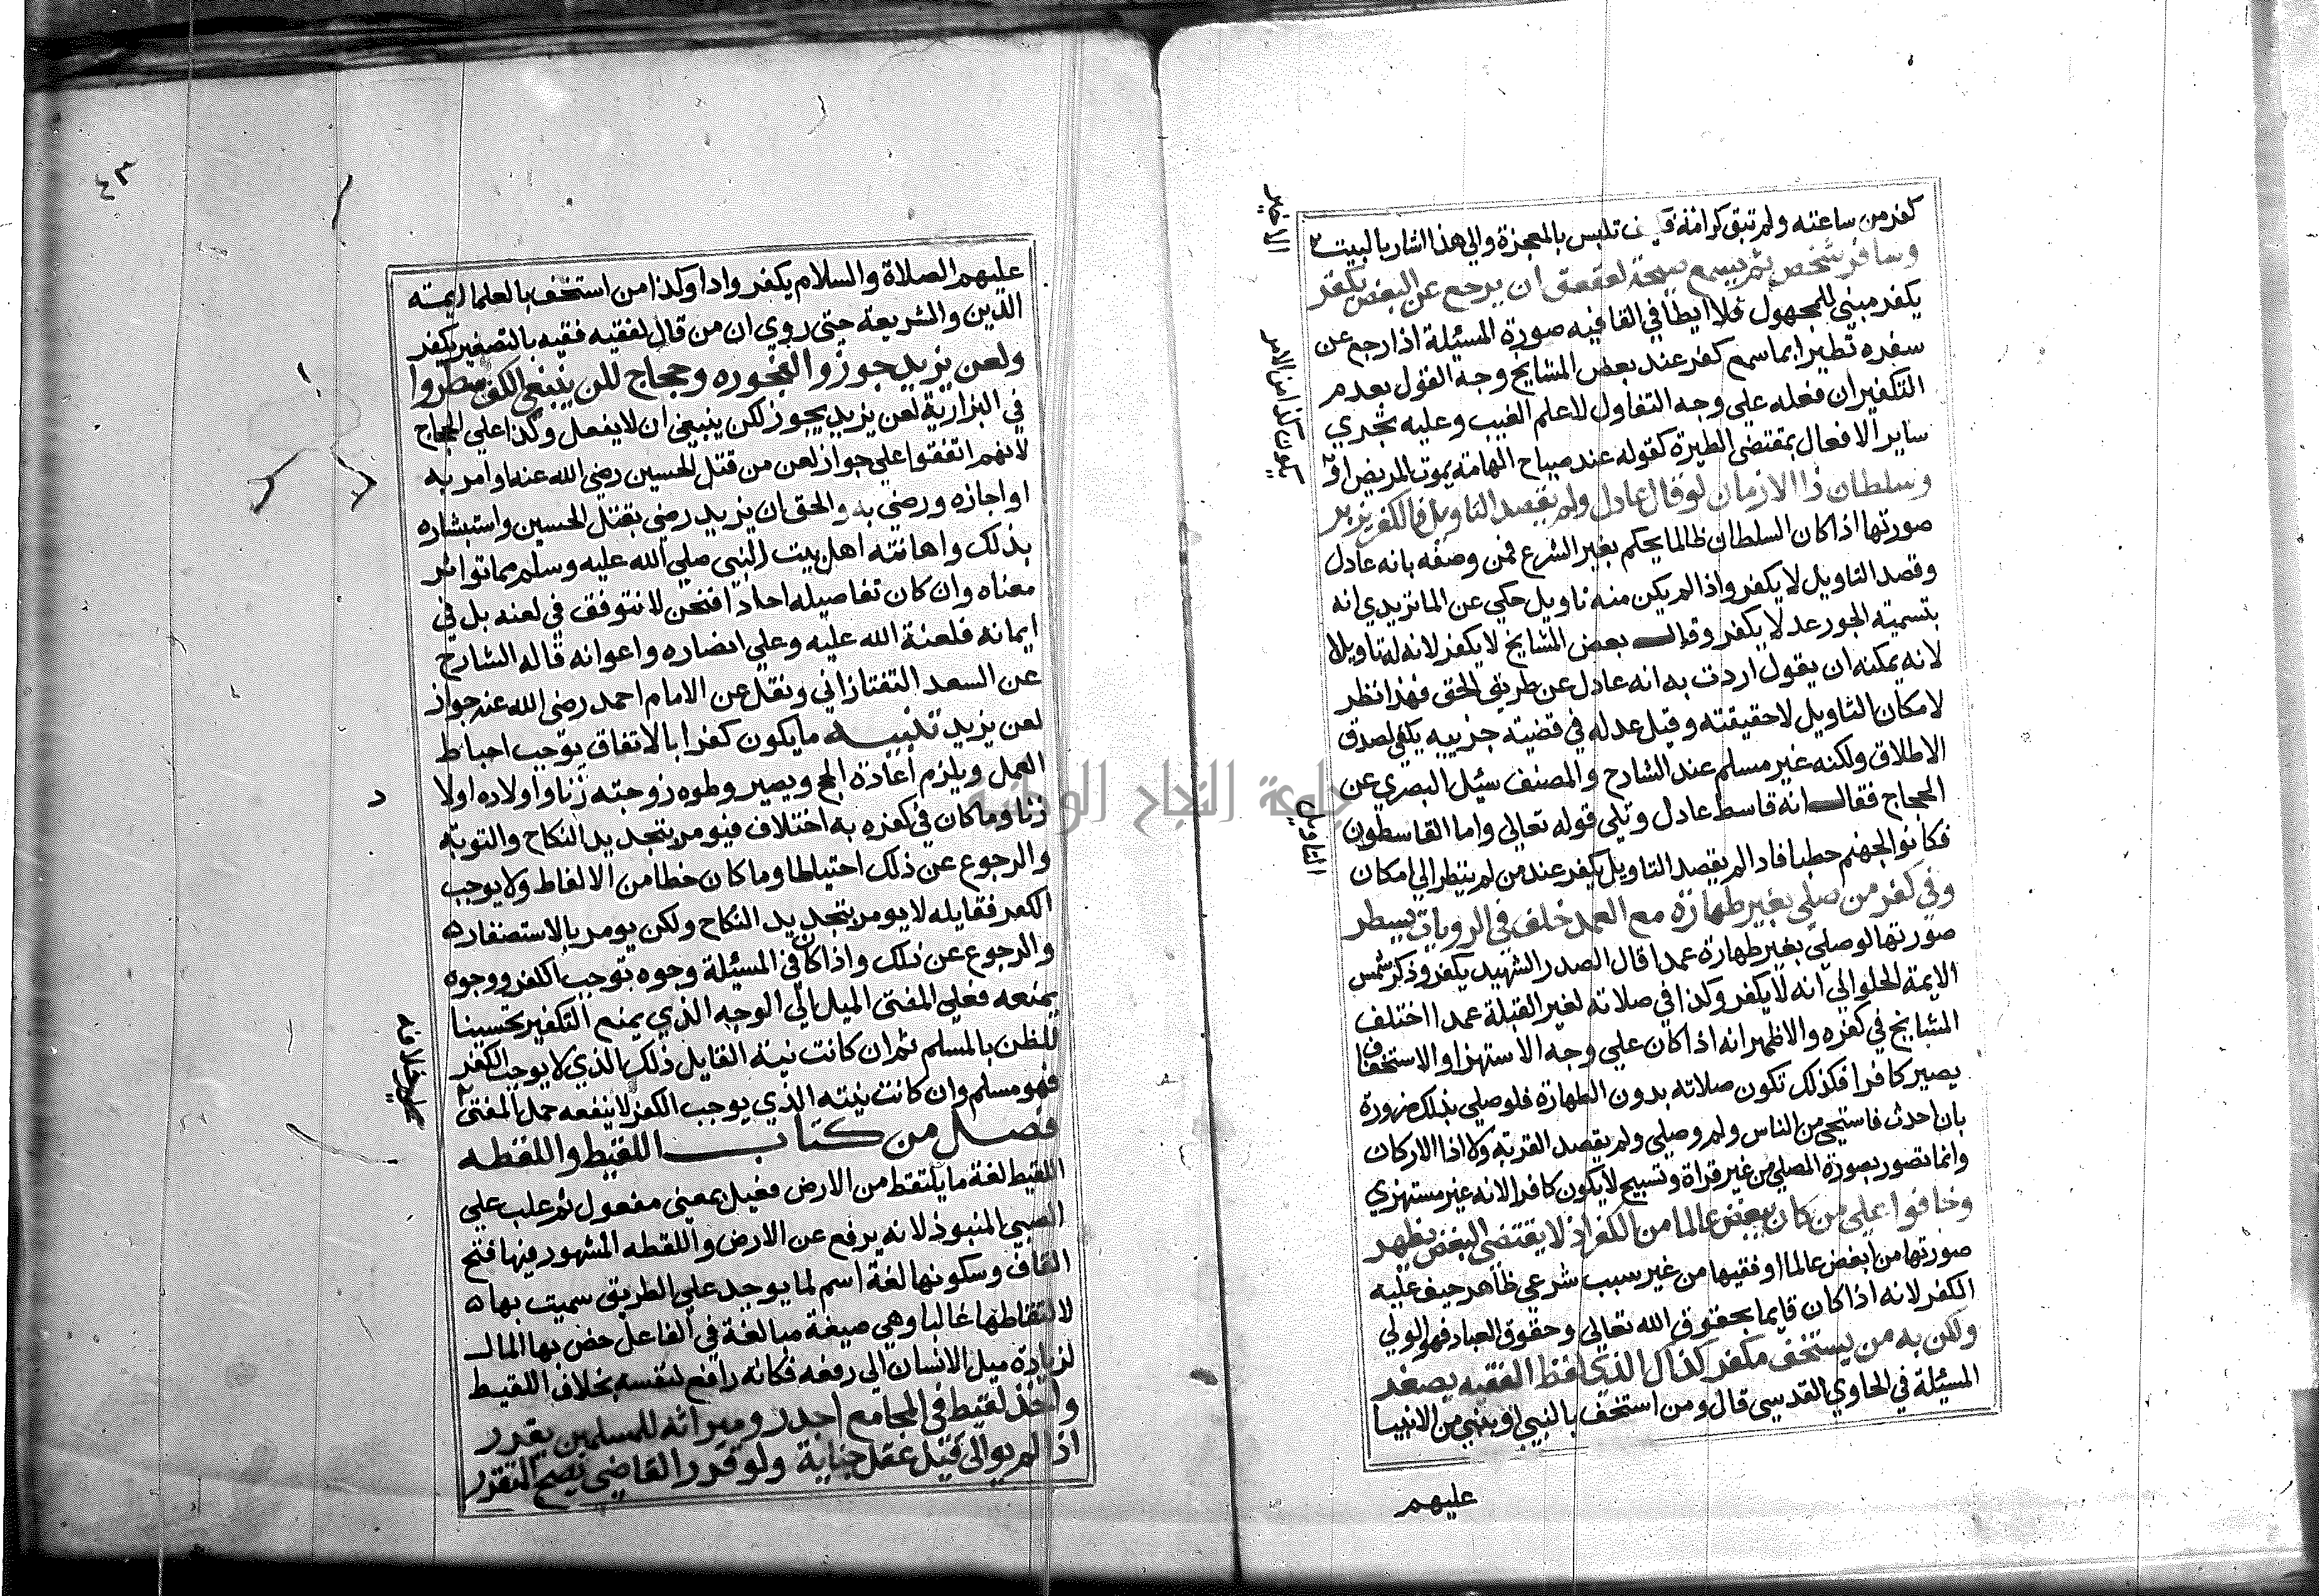 كفر من ساعته ولم تبق كرامة تلبس بالمعجزة والي هذا اشار بالبيت
الاخير
وسافر شخص ثم يسمع صيحة لعقعق ان يرجع عن البغض يكفر
يكفر مبني للمجهول فلا ايطا في القافيه صورة المسئلة اذا رجع عن
سفره تطيرا بما سمع كفر عند بعض المشايخ وجه القول بعدم
التكفير ان فعله علي وجه التفاول لا علم الغيب وعليه تجري
ساير الافعال بمقتضي الطيرة كقوله عند صياح الهامة يموت المريض او
يكون كذا من الامر
وسلطان ذا الازمان لو قال عادل ولم يقصد التاويل فالكفر يزبر
صورتها اذا كان السلطان ظالما يحكم بغير الشرع فمن وصفه بانه عادل
وقصد التاويل لا يكفر واذا لم يكن منه تاويل حكي عن الماتريدي انه
بتسمية الجور عدلا يكفر وقال بعض المشايخ لا يكفر لانه له تاويلا
لانه يمكنه ان يقول اردت به انه عادل عن طريق الحق فهذا نظر
لامكان التاويل لا حقيقته وقيل عدله في قضية جزييه يكفي لصدق
الاطلاق ولكنه غير مسلم عند الشارح والمصنف سئل البصري عن
الحجاج فقال انه قاسط عادل وتلي قوله تعالي واما القاسطون
فكانوا لجهنم حطبا فاذا لم يقصد التاويل يكفر عند من لم ينظر الي امكان
التاويل
وفي كفر من صلي بغير طهارة مع العمد خلف في الروايات يسطر
صورتها لو صلي بغير طهارة عمدا قال الصدر الشهيد يكفر وذكر شمس
الايمة الحلوالي انه لا يكفر وكذا في صلاته لغير القبلة عمدا اختلف
المشايخ في كفره والاظهر انه اذا كان علي وجه الاستهزا والاستخفاف
يصير كافرا فكذلك تكون صلاته بدون الطهارة فلو صلي بذلك ضرورة
بان احدث فاستحي من الناس ولم وصلي ولم يقصد القربة ولا اذا الاركان
وانما تصور بصورة المصلي من غير قراة وتسبيح لا يكون كافرا لانه غير مستهزي
وخافوا علي من كان يبغض عالما من الكفر اذ لا يقتضي البغض يظهر
صورتها من ابغض عالما او فقيها من غير سبب شرعي ظاهر خيف عليه
الكفر لانه اذا كان قايما بحقوق الله تعالي وحقوق العباد فهو الولي
ولكن به من يستخف مكفر كذال الذي لفظ الفقيه يصغر
المسئلة في الحاوي القدسي قال ومن استخف بالنبي او بنبي من الانبيا
عليهم
٤٣
عليهم الصلاة والسلام يكفر واذا وكذا من استخف بالعلما ايمته
الدين والشريعة حتي روي ان من قال لفقيه فقيه بالتصغير يكفر
ولعن يزيد جوزوا لفجوره وحجاج لكن ينبغي الكف سطروا
في البزارية لعن يزيد يجوز لكن ينبغي ان لا يفعل وكذا علي الحجاج
لانهم اتفقوا علي جواز لعن من قتل الحسين رضي الله عنه او امر به
او اجازه ورضي به والحق ان يزيد رضي بقتل الحسين واستبشاره
بذلك واهانته اهل بيت النبي صلي الله عليه وسلم مما تواتر
معناه وان كان تفاصيله احادا فنحن لا نتوقف في لعنه بل في
ايمانه فلعنة الله عليه وعلي انصاره واعوانه قاله الشارح
عن السعد التفتازاني ونقل عن الامام احمد رضي الله عنه جواز
لعن يزيد تنبيه ما يكون كفرا بالاتفاق يوجب احباط
العمل ويلزم اعادة الحج ويصير وطوه زوجته زنا واولاده اولا
د
زنا وما كان في كفره به اختلاف فيومر بتجديد النكاح والتوبة
والرجوع عن ذلك احتياطا وما كان خطا من الالفاظ ولا يوجب
الكفر فقايله لا يومر بتجديد النكاح ولكن يومر بالاستغفار
والرجوع عن ذلك واذا كان في المسئلة وجوه توجب الكفر ووجوه
يمنعه فعلي المفتي الميل الي الوجه الذي يمنع التكفير تحسينا
للظن بالمسلم ثم ان كانت نية القايل ذلك الذي لا يوجب الكفر
فهو مسلم وان كانت نيته الذي يوجب الكفر لا ينفعه حمل المفتي
علي خلافه
فصل من كتاب اللقيط واللقطه
اللقيط لغة ما يلتقط من الارض فعيل بمعني مفعول ثم غلب علي
الصبي المنبوذ لانه يرفع عن الارض واللقطه المشهور فيها فتح
القاف وسكونها لغة اسم لما يوجد علي الطريق سميت بها
لالتقاطها غالبا وهي صيغة مبالغة في الفاعل خص بها المال
لزيادة ميل الانسان الي رفعه فكانه رافع لنفسه بخلاف اللقيط
واخذ لقيط في المجامع اجدر وميراثه للمسلمين يقدر
اذا لم يوالي قيل عقل جناية ولو قرر القاضي يصح التقرر
جامعة النجاح الوطنية